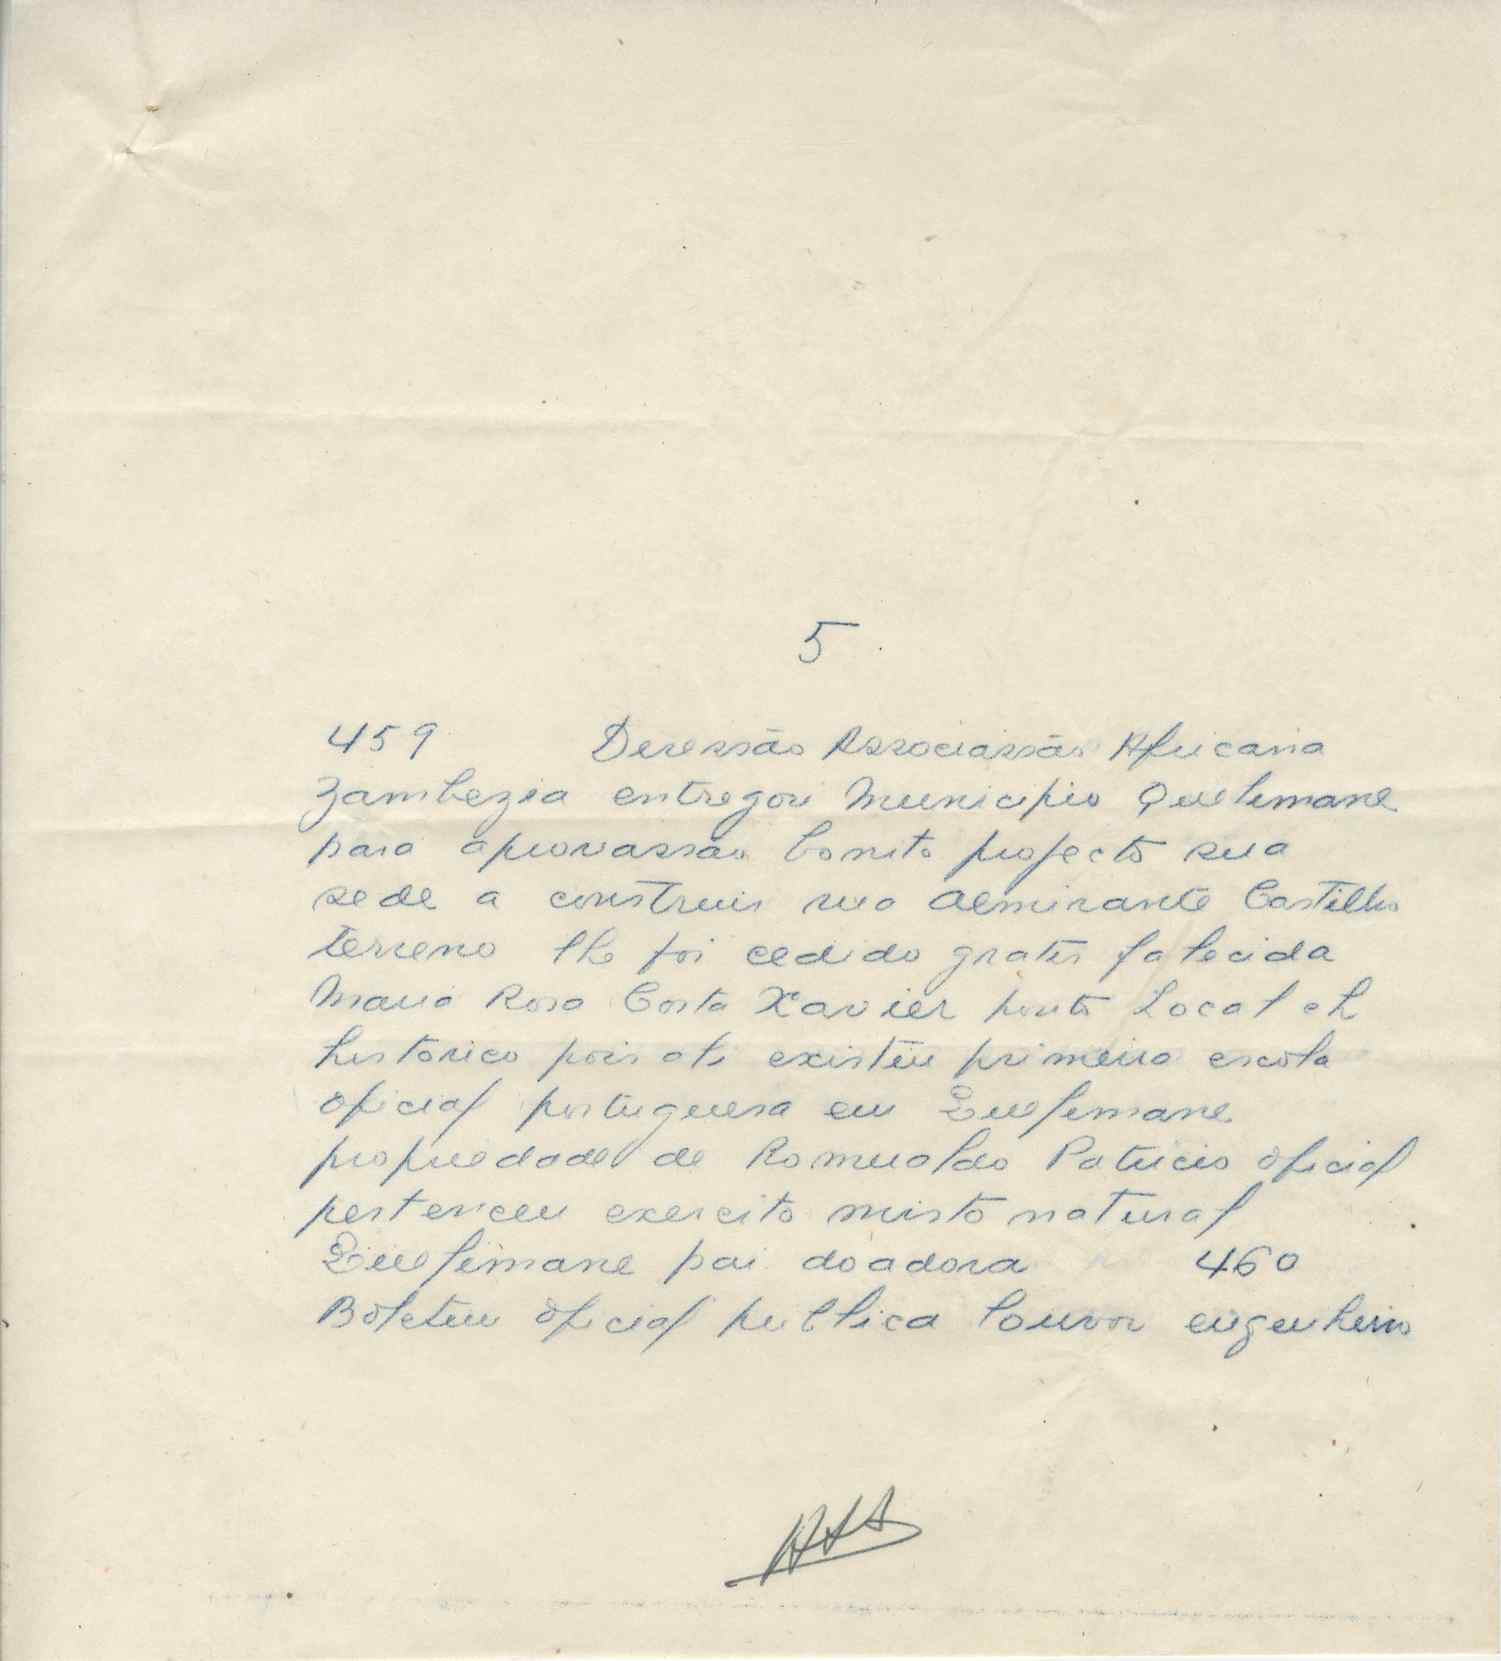 5
459 Deressão Associassão Africana
Zambezia entregou Municipio Quelimane
para aprovassão bonito projecto sua
sede a construir rua Almirante Castilho
terreno lhe foi cedido gratis falecida
Maria Rosa Costa Xavier ponto Local eh
historico pois ali existiu primeira escola
oficial portuguesa em Quelimane
propriedade de Romualdo Patricio oficial
pertenceu exercito misto natural
Quelimane pai doadora 460
Boletim oficial publica louvor engenheiro